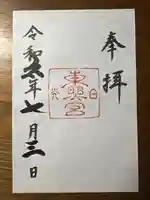 奉拝
東照宮
令和六年七月三日